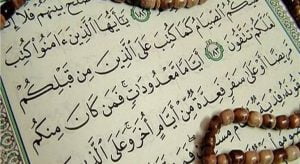 بَيْنَهُمْ فَلَا
١٨٢ يَٰٓأَيُّهَا ٱلَّذِينَ ءَامَنُوا۟ كُتِبَ
ٱلصِّيَامُ كَمَا كُتِبَ عَلَى ٱلَّذِينَ مِن قَبْلِكُمْ
تَتَّقُونَ ١٨٣ أَيَّامًا مَّعْدُودَٰتٍ فَمَن كَانَ مِنكُم
أَوْ عَلَىٰ سَفَرٍ فَعِدَّةٌ مِّنْ أَيَّامٍ أُخَرَ وَعَلَى ٱلَّذِينَ